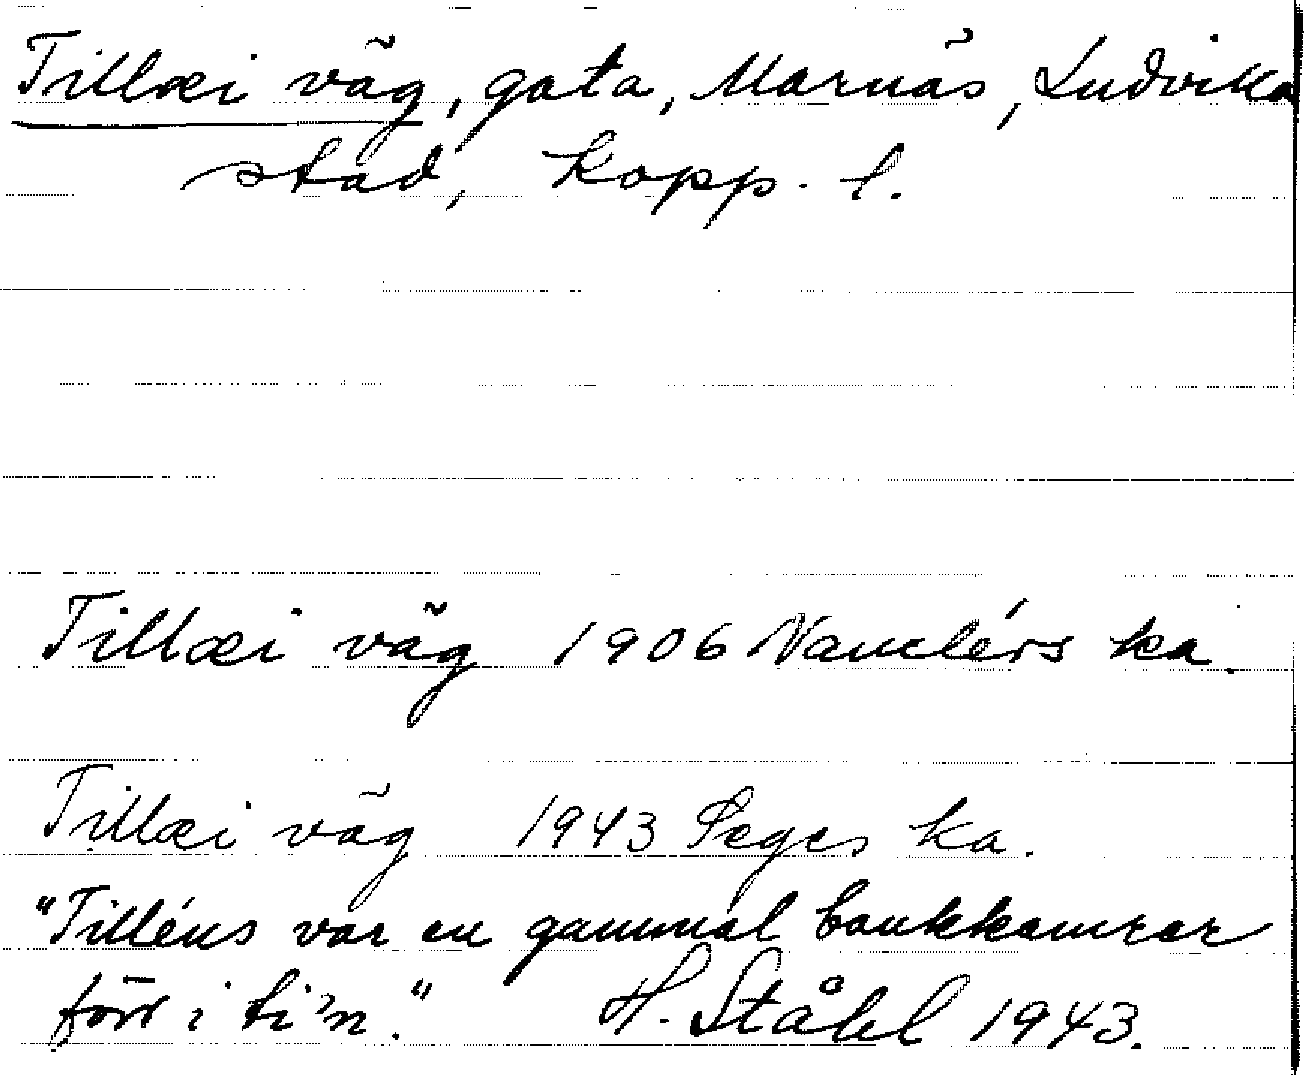 Tillæi väg, gata, Marnäs, Ludvika
stad, Kopp. l.
Tillæi väg 1906 Nauclérs ka.
Tillæi väg 1943 Seges ka.
"Tilléns var en gammal bankkamrar
förr i ti'n." H. Ståhl 1943.